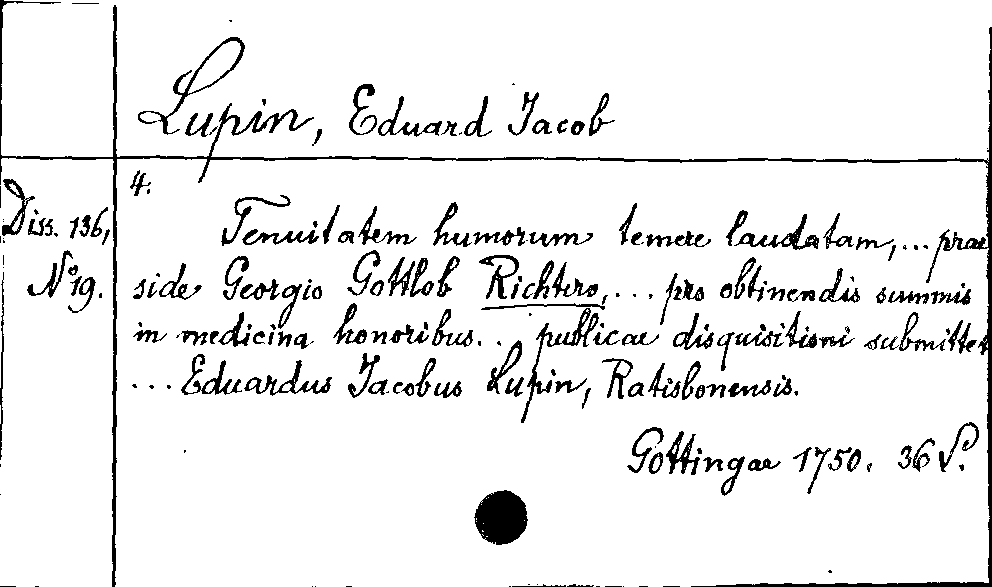 Lupin, Eduard Jacob
4.
Diss. 136,
No 19.
Tenuitatem humorum temere laudatam,... prae
side Georgio Gottlob Richtero,... pro obtinendis summis
in medicina honoribus... publicae disquisitioni submittet
... Eduardus Jacobus Lupin, Ratisbonensis.
Gottingae 1750. 36 S.